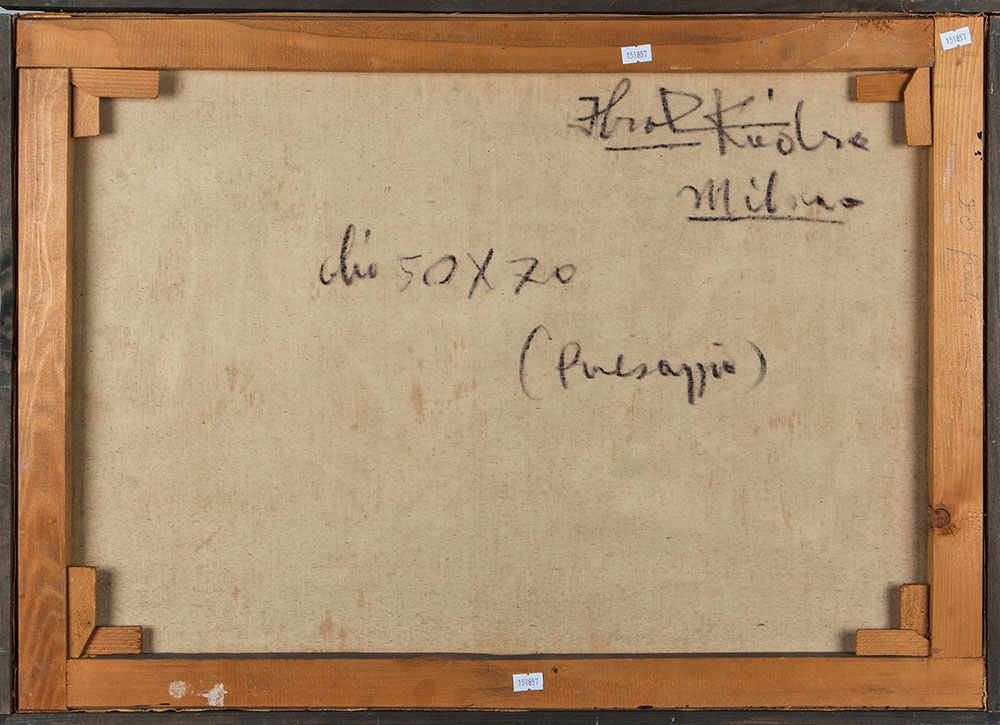 151857
151857
Ibrahim Kodra
Milano
olio 50X70
(Paesaggio)
151857